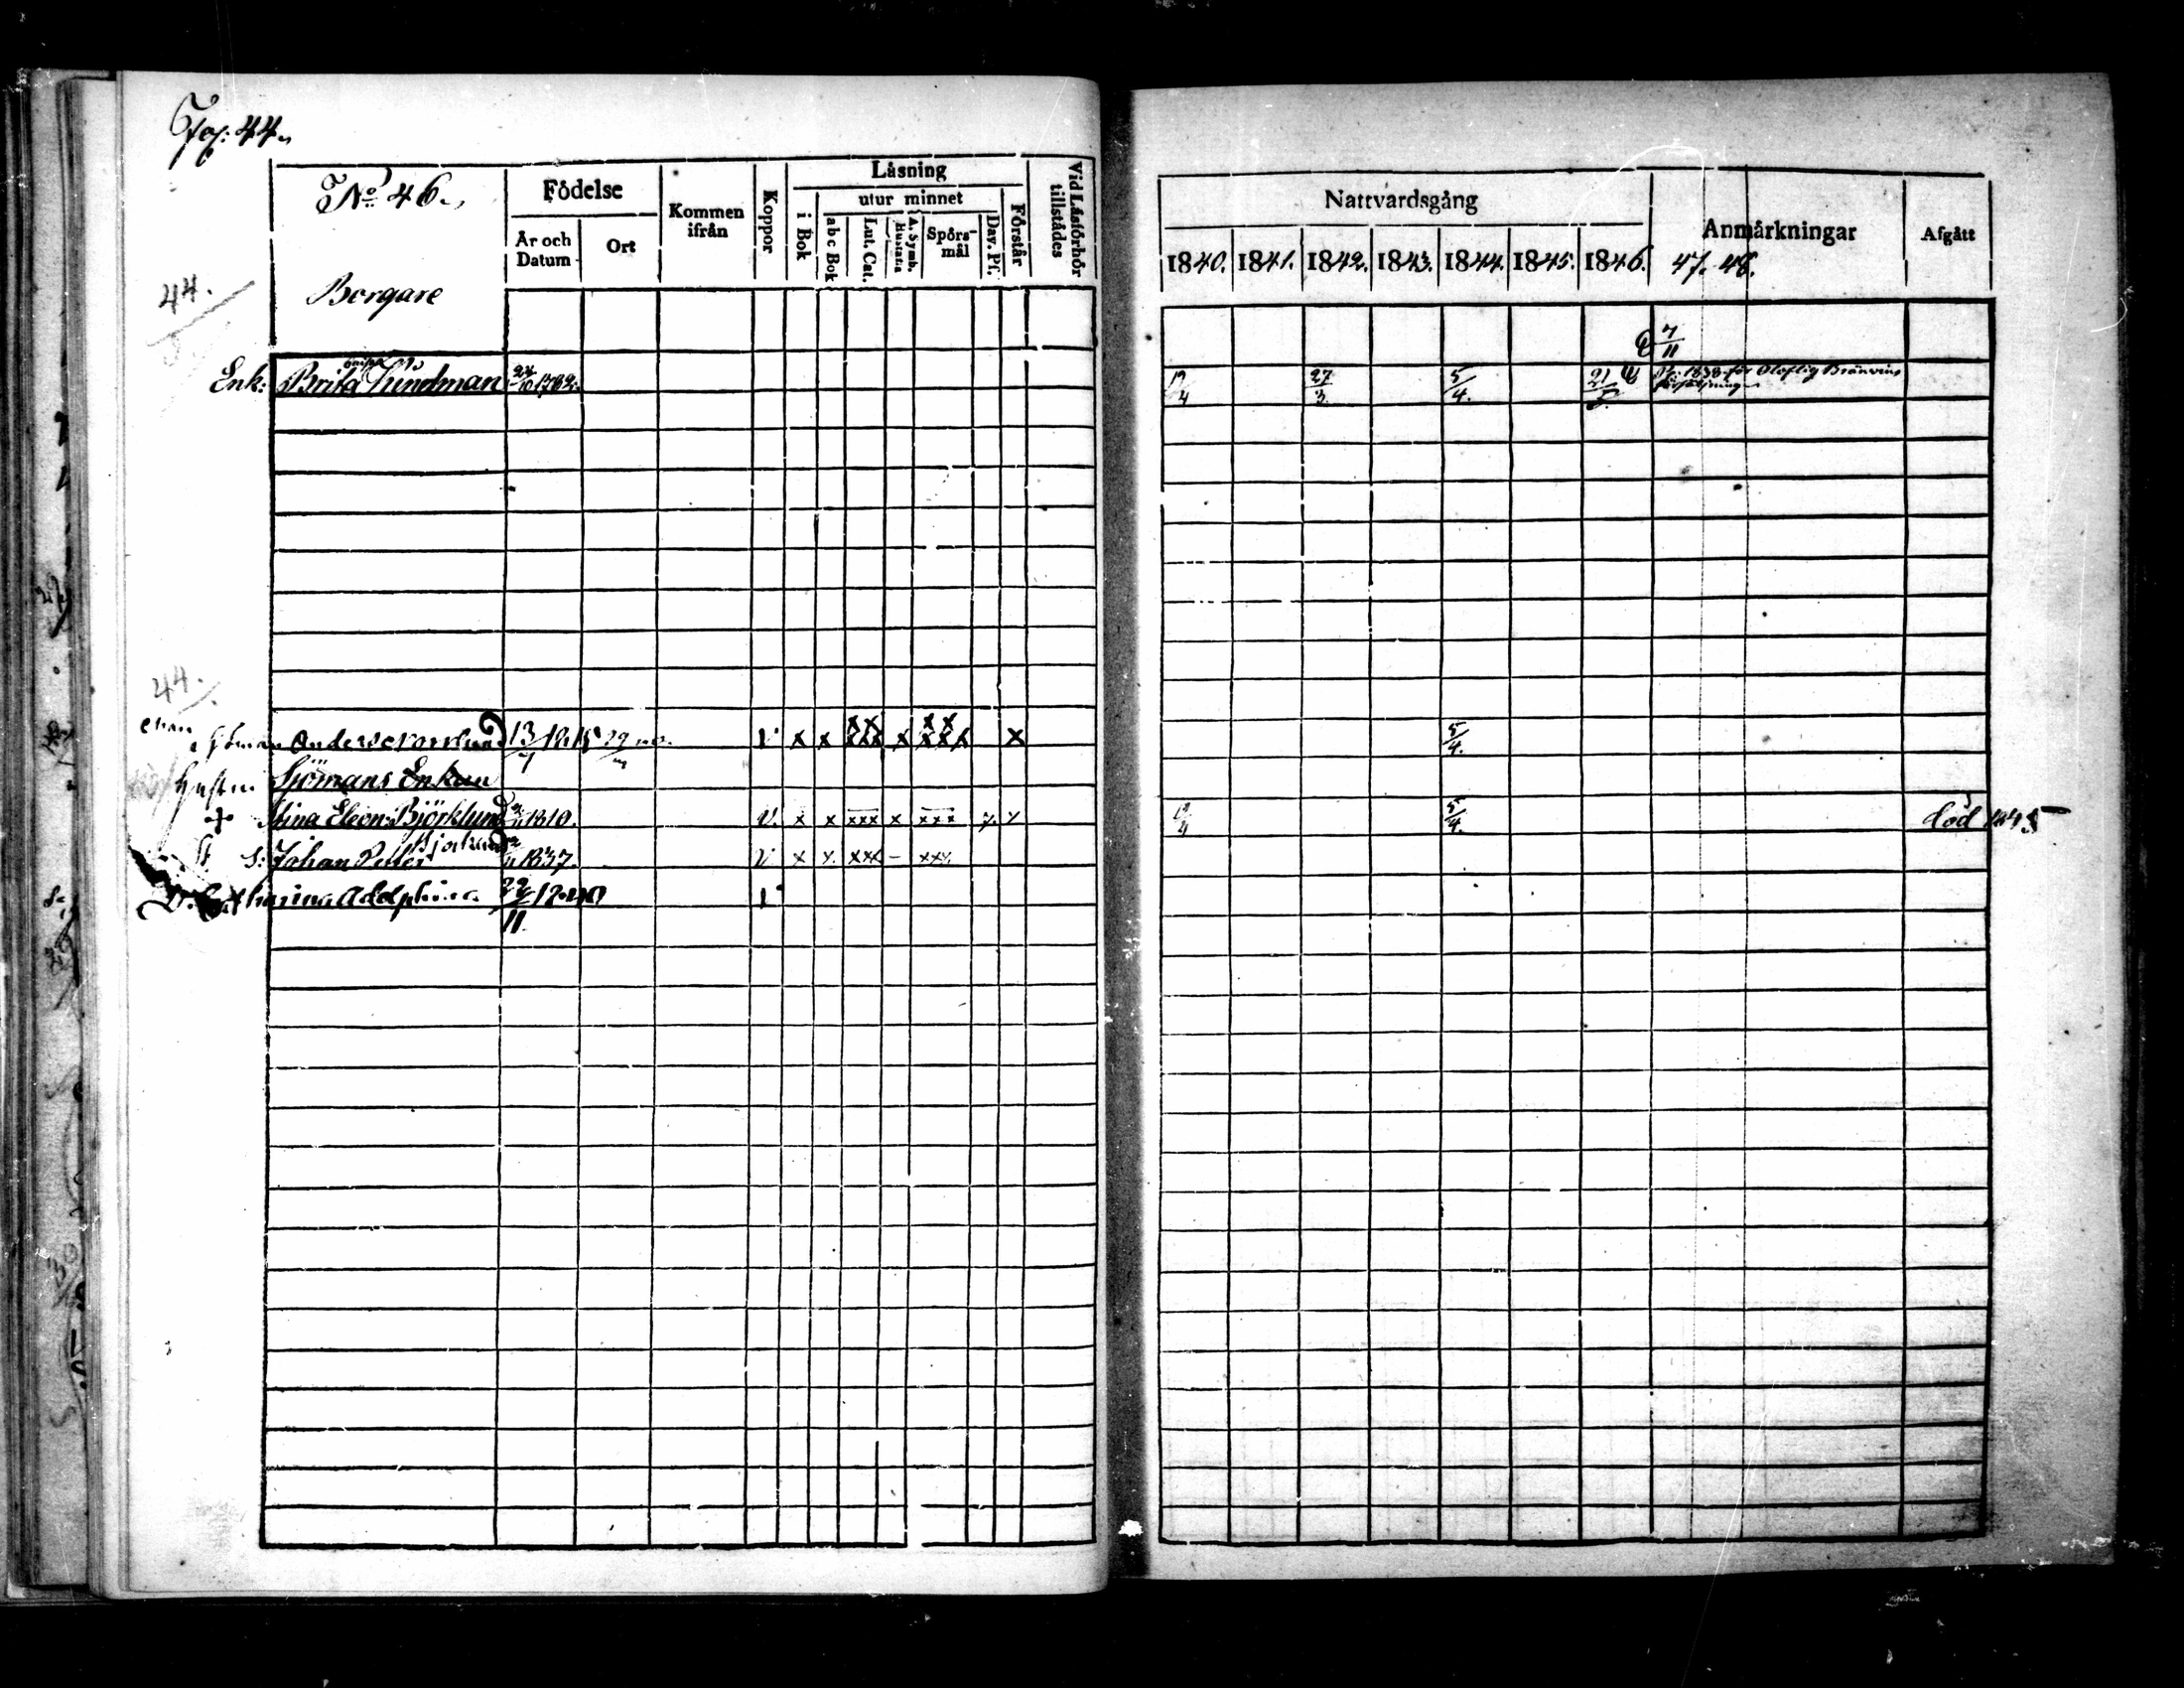 Fol: 44.
No 46. Födelse Kommen ifrån Koppor Läsning Vid Läsförhör tillstådes
År och Datum Ort i Bok utur minnet Förstår
abc Bok Lut. Cat. A. Symb. Hustafla Spörs-mål Dav. Ps.
Nattvardsgång Anmärkningar Afgått
1840. 1841. 1842. 1843. 1844. 1845. 1846. 47. 48.
44.
Borgare
7/11
Enk: Brita Sundman 24/10 1782. 12/4 27/3 5/4. 21/5 1838 för Oloflig Bränvins försäljning
44.
Anders Norrlund 13/7 1815 V x x xx xxx x xx xxx x 5/4.
Hustru Sjömans Enkan
Stina Eleon: Björklund 1810. V. x x xxx x xxx x x 12/4 5/4. död 1845
S: Johan Petter Björklund 1837. V x x xxx - xxx
D. Catharina Adolphina 22/11 1840 V